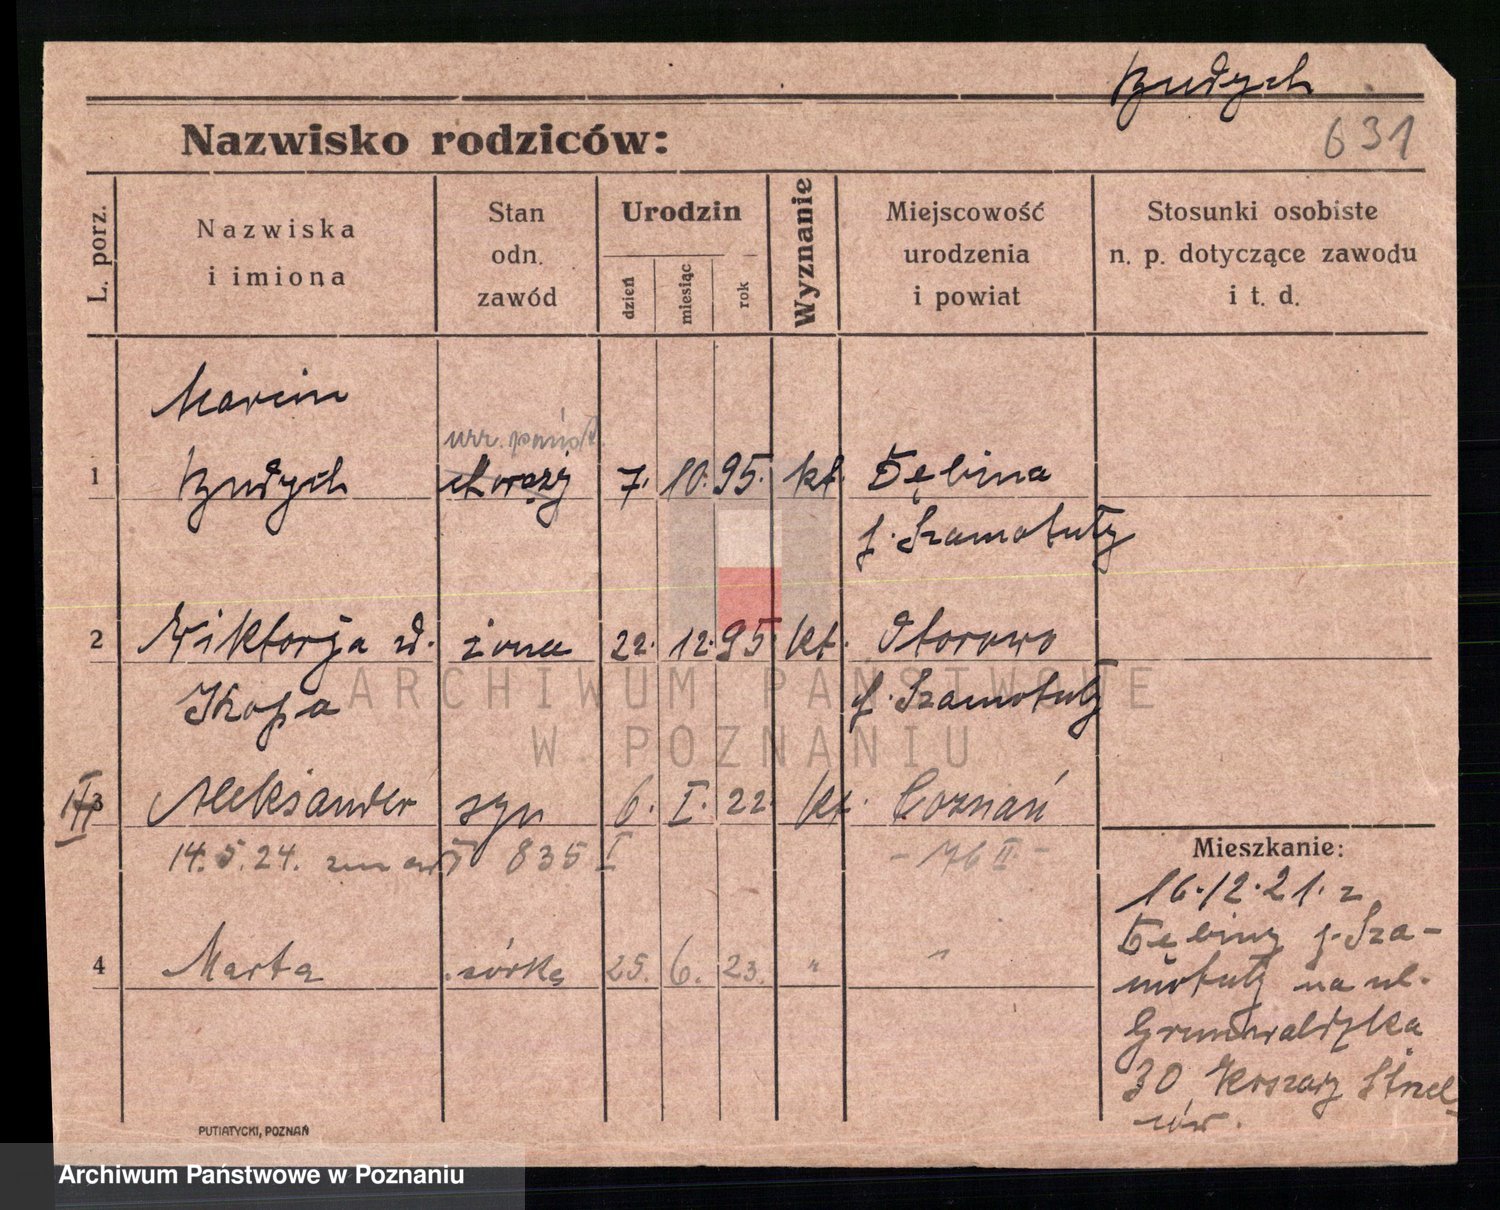 Budych
631
Nazwisko rodziców:
L. porz.
Nazwiska
i imiona
Stan
odn.
zawód
Urodzin
dzień
miesiąc
rok
Wyznanie
Miejscowość
urodzenia
i powiat
Stosunki osobiste
n. p. dotyczące zawodu
i t. d.
Marcin
urz. państ.
1 Budych 7. 10. 95. kt. Dębina
p. Szamotuły
2 Wiktorja z d. żona 22. 12. 95 kt. Otorowo
Skopa p. Szamotuły
3 Aleksander syn 6. I. 22. kt. Poznań
14. 5. 24. zmarł 835 I - 76 II -
Mieszkanie:
16.12.21. z
Dębiny p. Sza-
motuły na ul.
Grunwaldzka
30 Koszary Strzel-
ców.
4 Marta córka 25. 6. 23. " "
PUTIATYCKI, POZNAŃ
ARCHIWUM PAŃSTWOWE
W POZNANIU
Archiwum Państwowe w Poznaniu